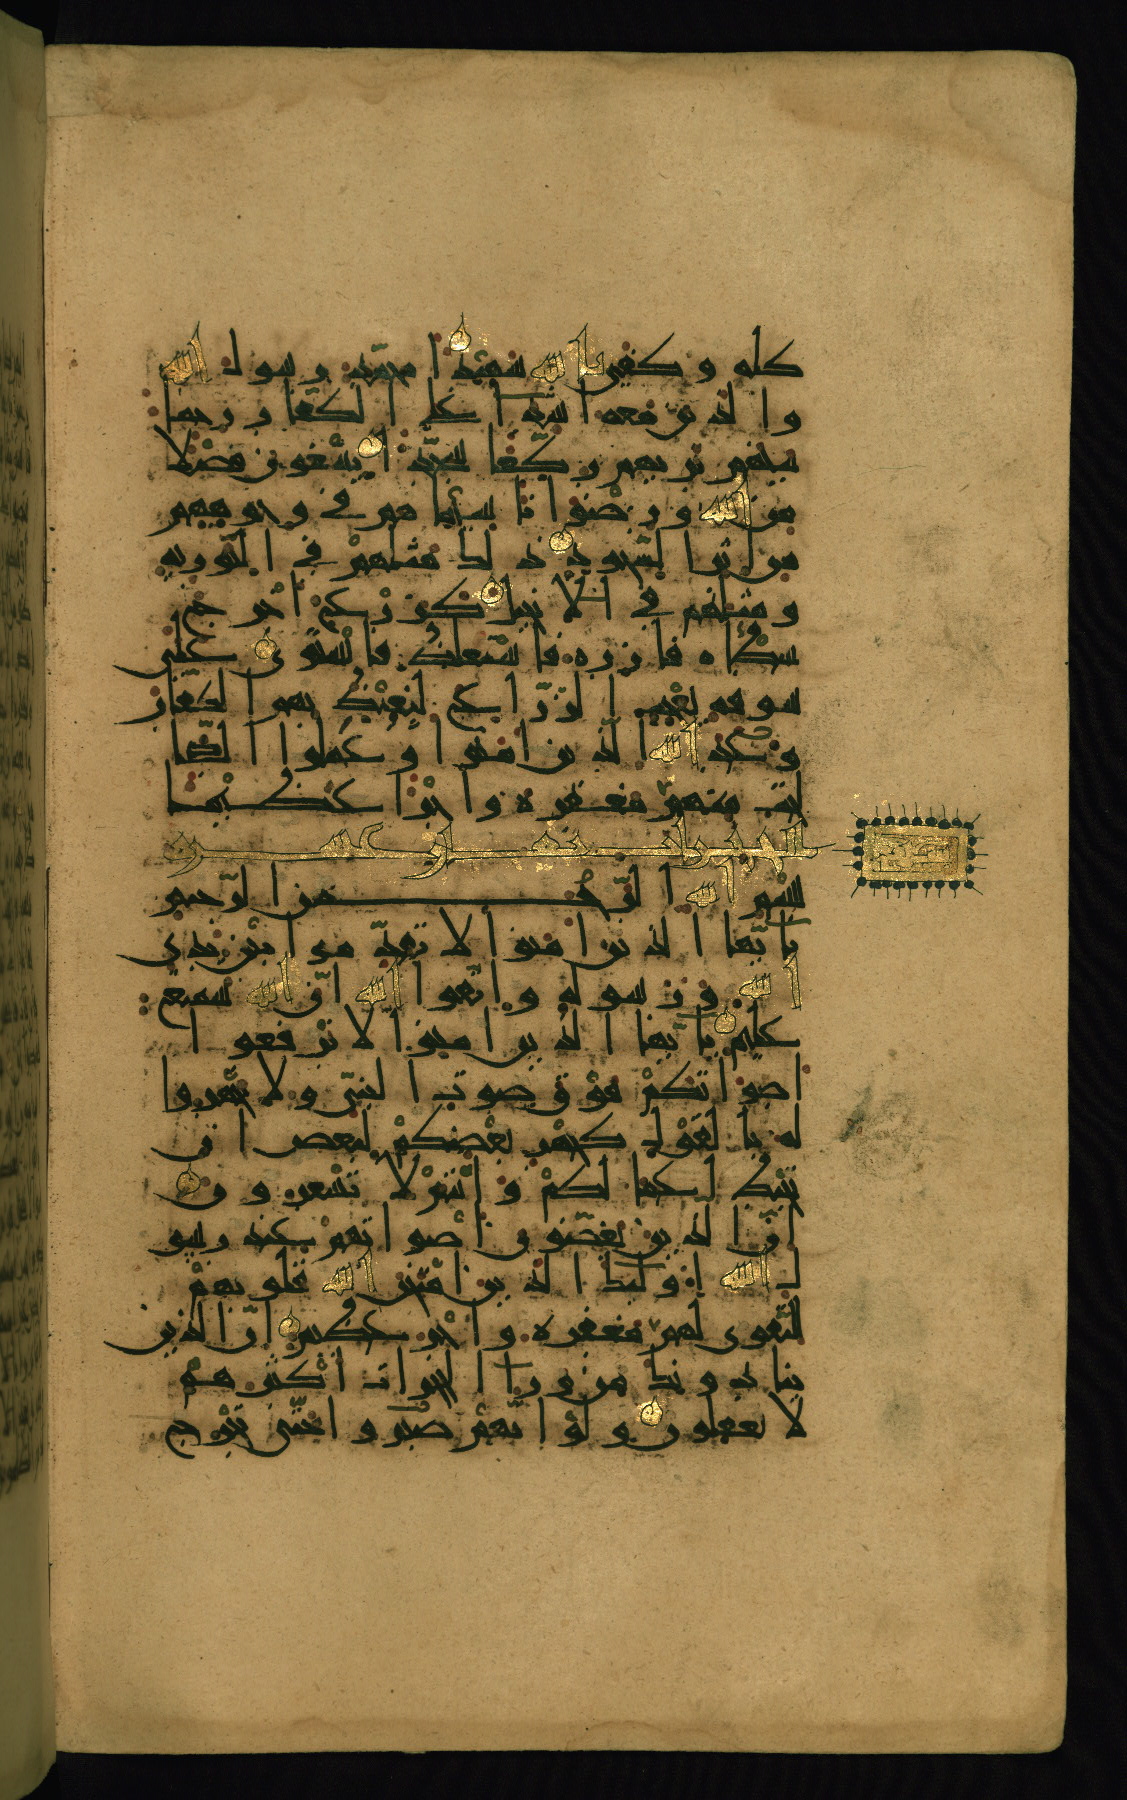 كله و كفى بالله شهيدا محمد رسول الله
والذين معه اشدا على الكفار رحما
بينهم تريهم ركعا سجدا يبتغون فضلا
من الله ورضوانا سيماهم في وجوههم
من اثر السجود ذلك مثلهم في التوريه
ومثلهم في الانجيل كزرع اخرج
شطاه فازره فاستغلظ فاستوى على
سوقه يعجب الزراع ليغيظ بهم الكفار
وعد الله الذين امنوا وعملوا الصا
لحت منهم مغفره واجرا عظيما
الحجرات ثمان عشره
بسم الله الرحمن الرحيم
يا يها الذين امنوا لا تقدموا بين يدى
الله ورسوله واتقوا الله ان الله سميع
عليم يا يها الذين امنوا لا ترفعوا
اصواتكم فوق صوت النبي ولا تجهروا
له بالقول كجهر بعضكم لبعض ان
تحبط اعمالكم وانتم لا تشعرون
ان الذين يغضون اصواتهم عند رسو
ل الله اولئك الذين امتحن الله قلوبهم
للتقوى لهم مغفره واجر عظيم ان الذين
ينادونك من ورا الحجرات اكثرهم
لا يعقلون ولو انهم صبروا حتى تخرج